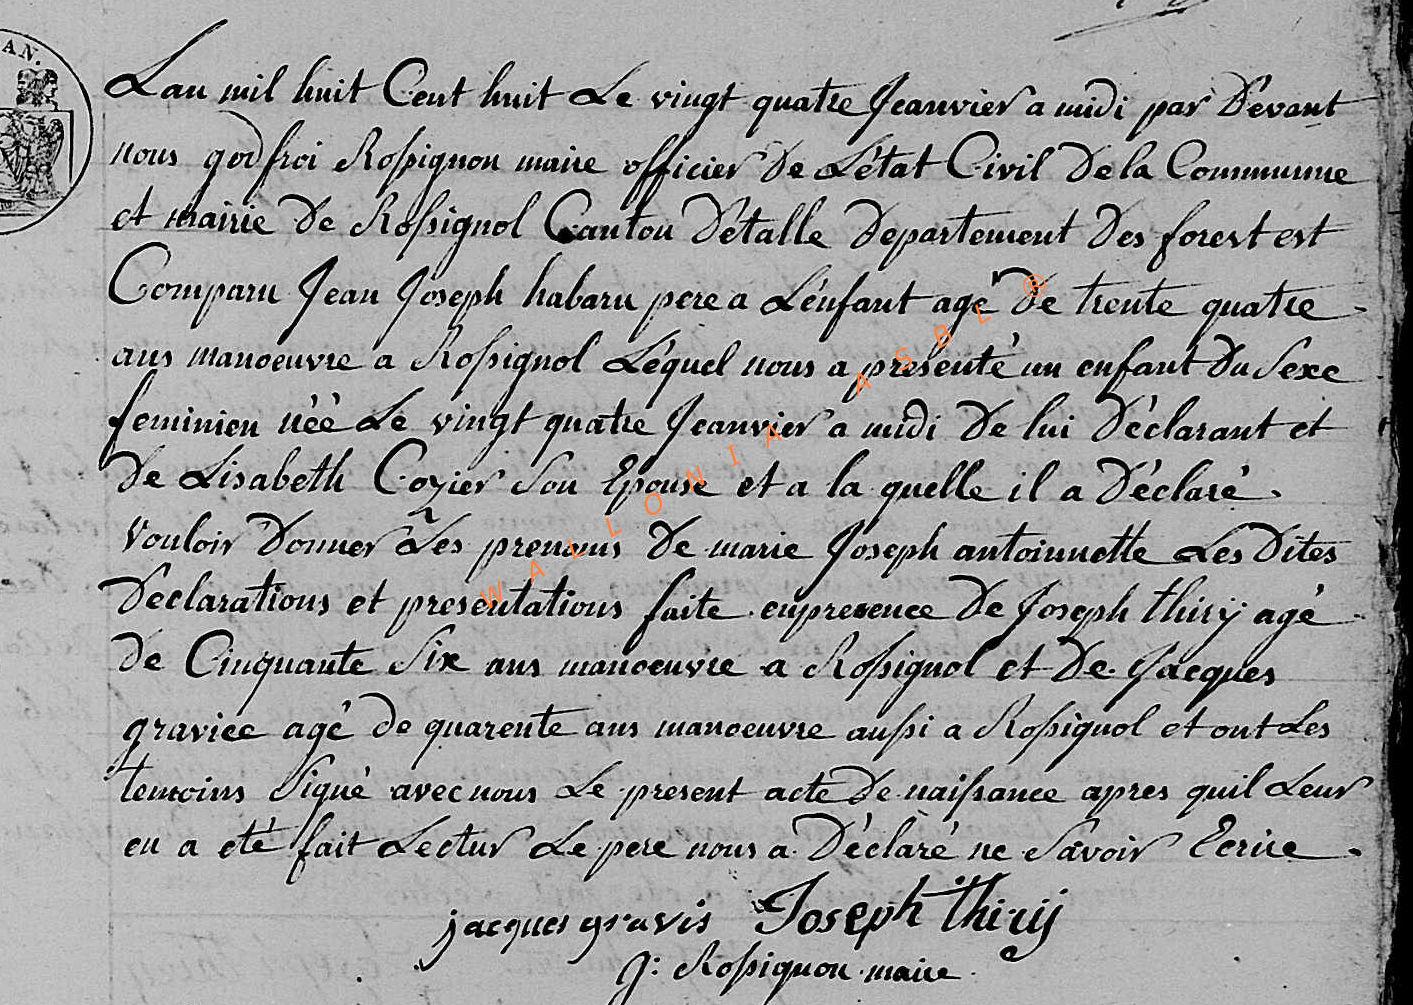 AN.
Lan mil huit Cent huit Le vingt quatre Jeanvier a midi par Dévant
nous godfroi Rossignon maire officier De Létat Civil De la Communne
et mairie De Rossignol Canton Détalle Departement Des forest est
Comparu Jean Joseph habaru pere a Lénfant agé De trente quatre
ans manoeuvre a Rossignol Léquel nous a presenté un enfant Du Sexe
feminien néé Le vingt quatre Jeanvier a midi De lui Déclarant et
De Lisabeth Cozier Son Epouse et a la quelle il a Déclaré.
Vouloir Donner Les prenoms De marie Joseph antoinnette Les Dites
Déclarations et presentations faite enpresence De Joseph thirÿ agé
De Cinquante Six ans manoeuvre a Rossignol et De Jacques
graviee agé De quarente ans manoeuvre aussi a Rossignol et ont Les
temoins Signé avec nous Le present acte De naissance apres quil Leur
en a été fait Lectur Le pere nous a Déclaré ne Savoir Ecrire.
jacques gravis Joseph thirij
J: Rossignon maire
WALLONIA ASBL ®